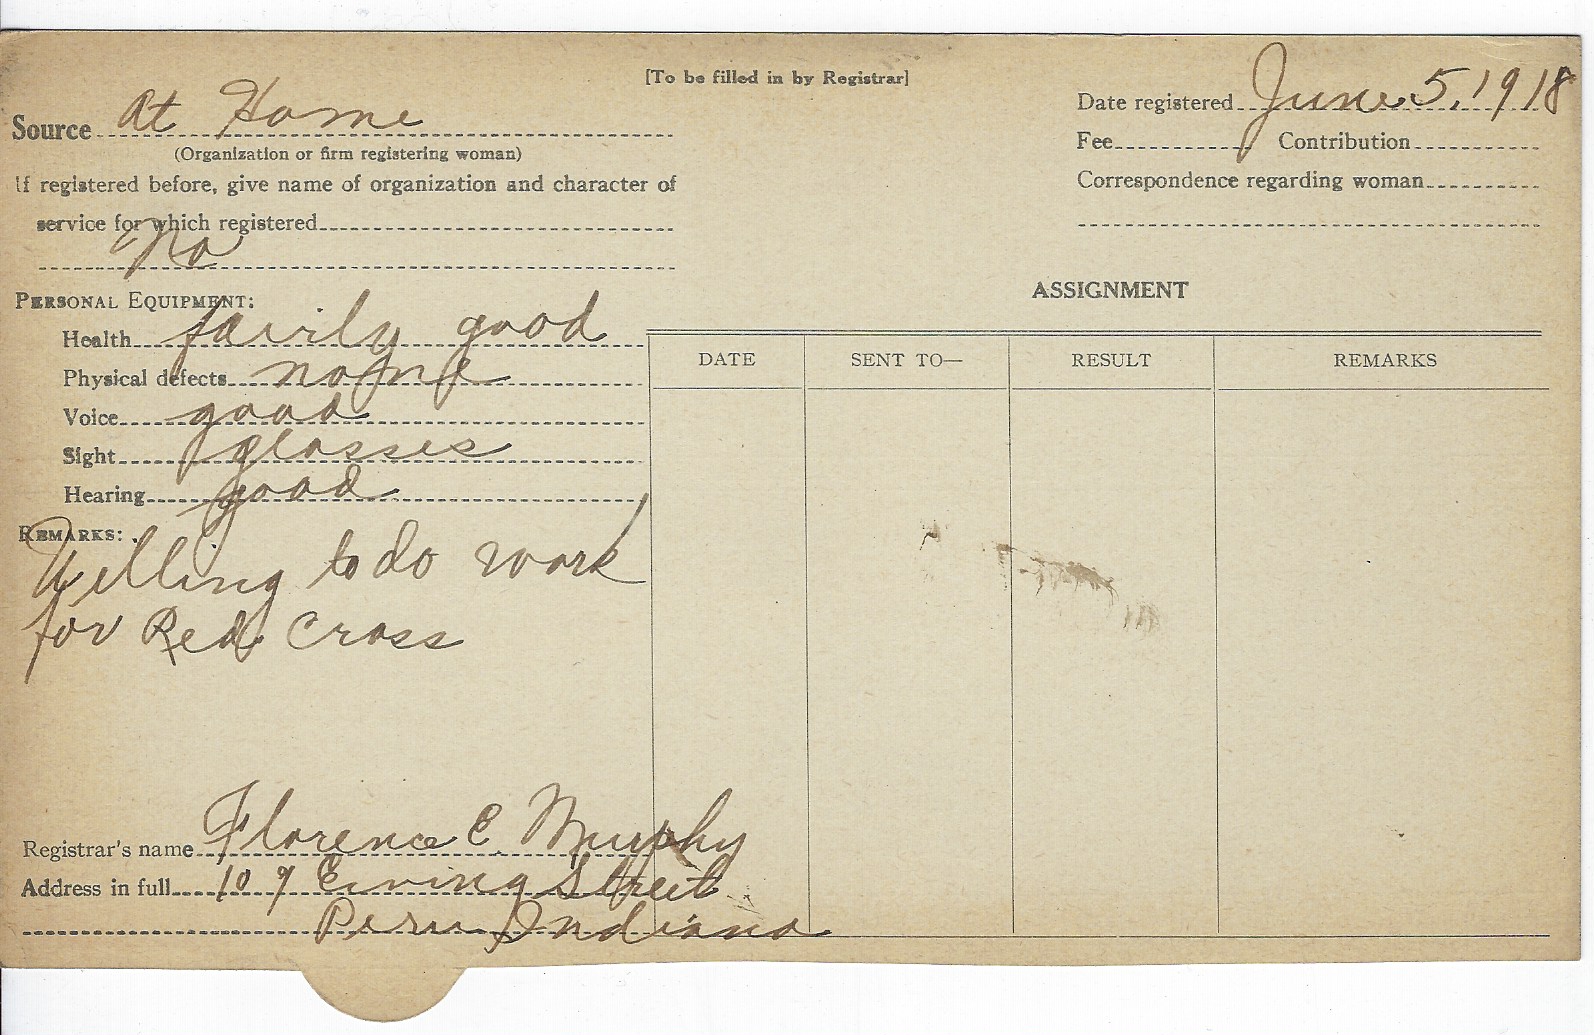 [To be filled in by Registrar]
Source At Home
(Organization or firm registering woman)
If registered before, give name of organization and character of
service for which registered
No
Date registered June 5, 1918
Fee Contribution
Correspondence regarding woman
PERSONAL EQUIPMENT:
Health fairily good
Physical defects none
Voice good
Sight glasses
Hearing good
REMARKS:
Willing to do work
for Red Cross
ASSIGNMENT
DATE SENT TO— RESULT REMARKS
Registrar's name Florence C. Murphy
Address in full 109 Ewing Street
Peru Indiana